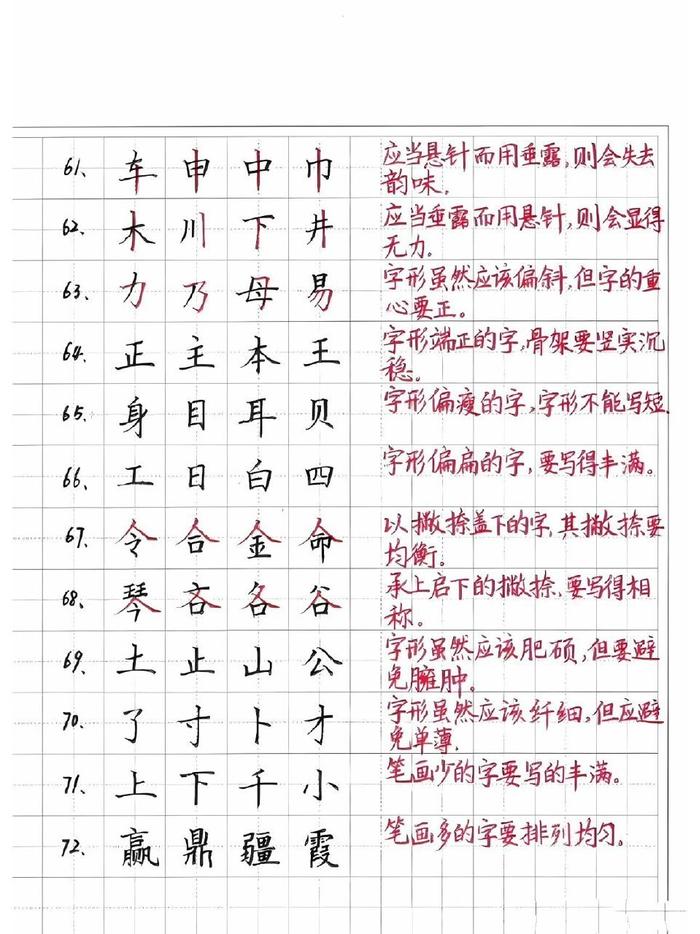 61、车申中巾 应当悬针而用垂露,则会失去
韵味。
62、木川下井 应当垂露而用悬针,则会显得
无力.
63、力乃母易 字形虽然应该偏斜,但字的重
心要正。
64、正主本王 字形端正的字,骨架要竖实沉
稳。
65、身目耳贝 字形偏瘦的字,字形不能写短.
66、工日白四 字形偏扁的字,要写得丰满。
67、令合金命 以撇捺盖下的字,其撇捺要
均衡。
68、琴吝各谷 承上启下的撇捺,要写得相
称。
69、土止山公 字形虽然应该肥硕,但要避
免臃肿。
70、了寸卜才 字形虽然应该纤细,但应避
免单薄.
71、上下千小 笔画少的字要写的丰满。
72、赢鼎疆霞 笔画多的字要排列均匀。